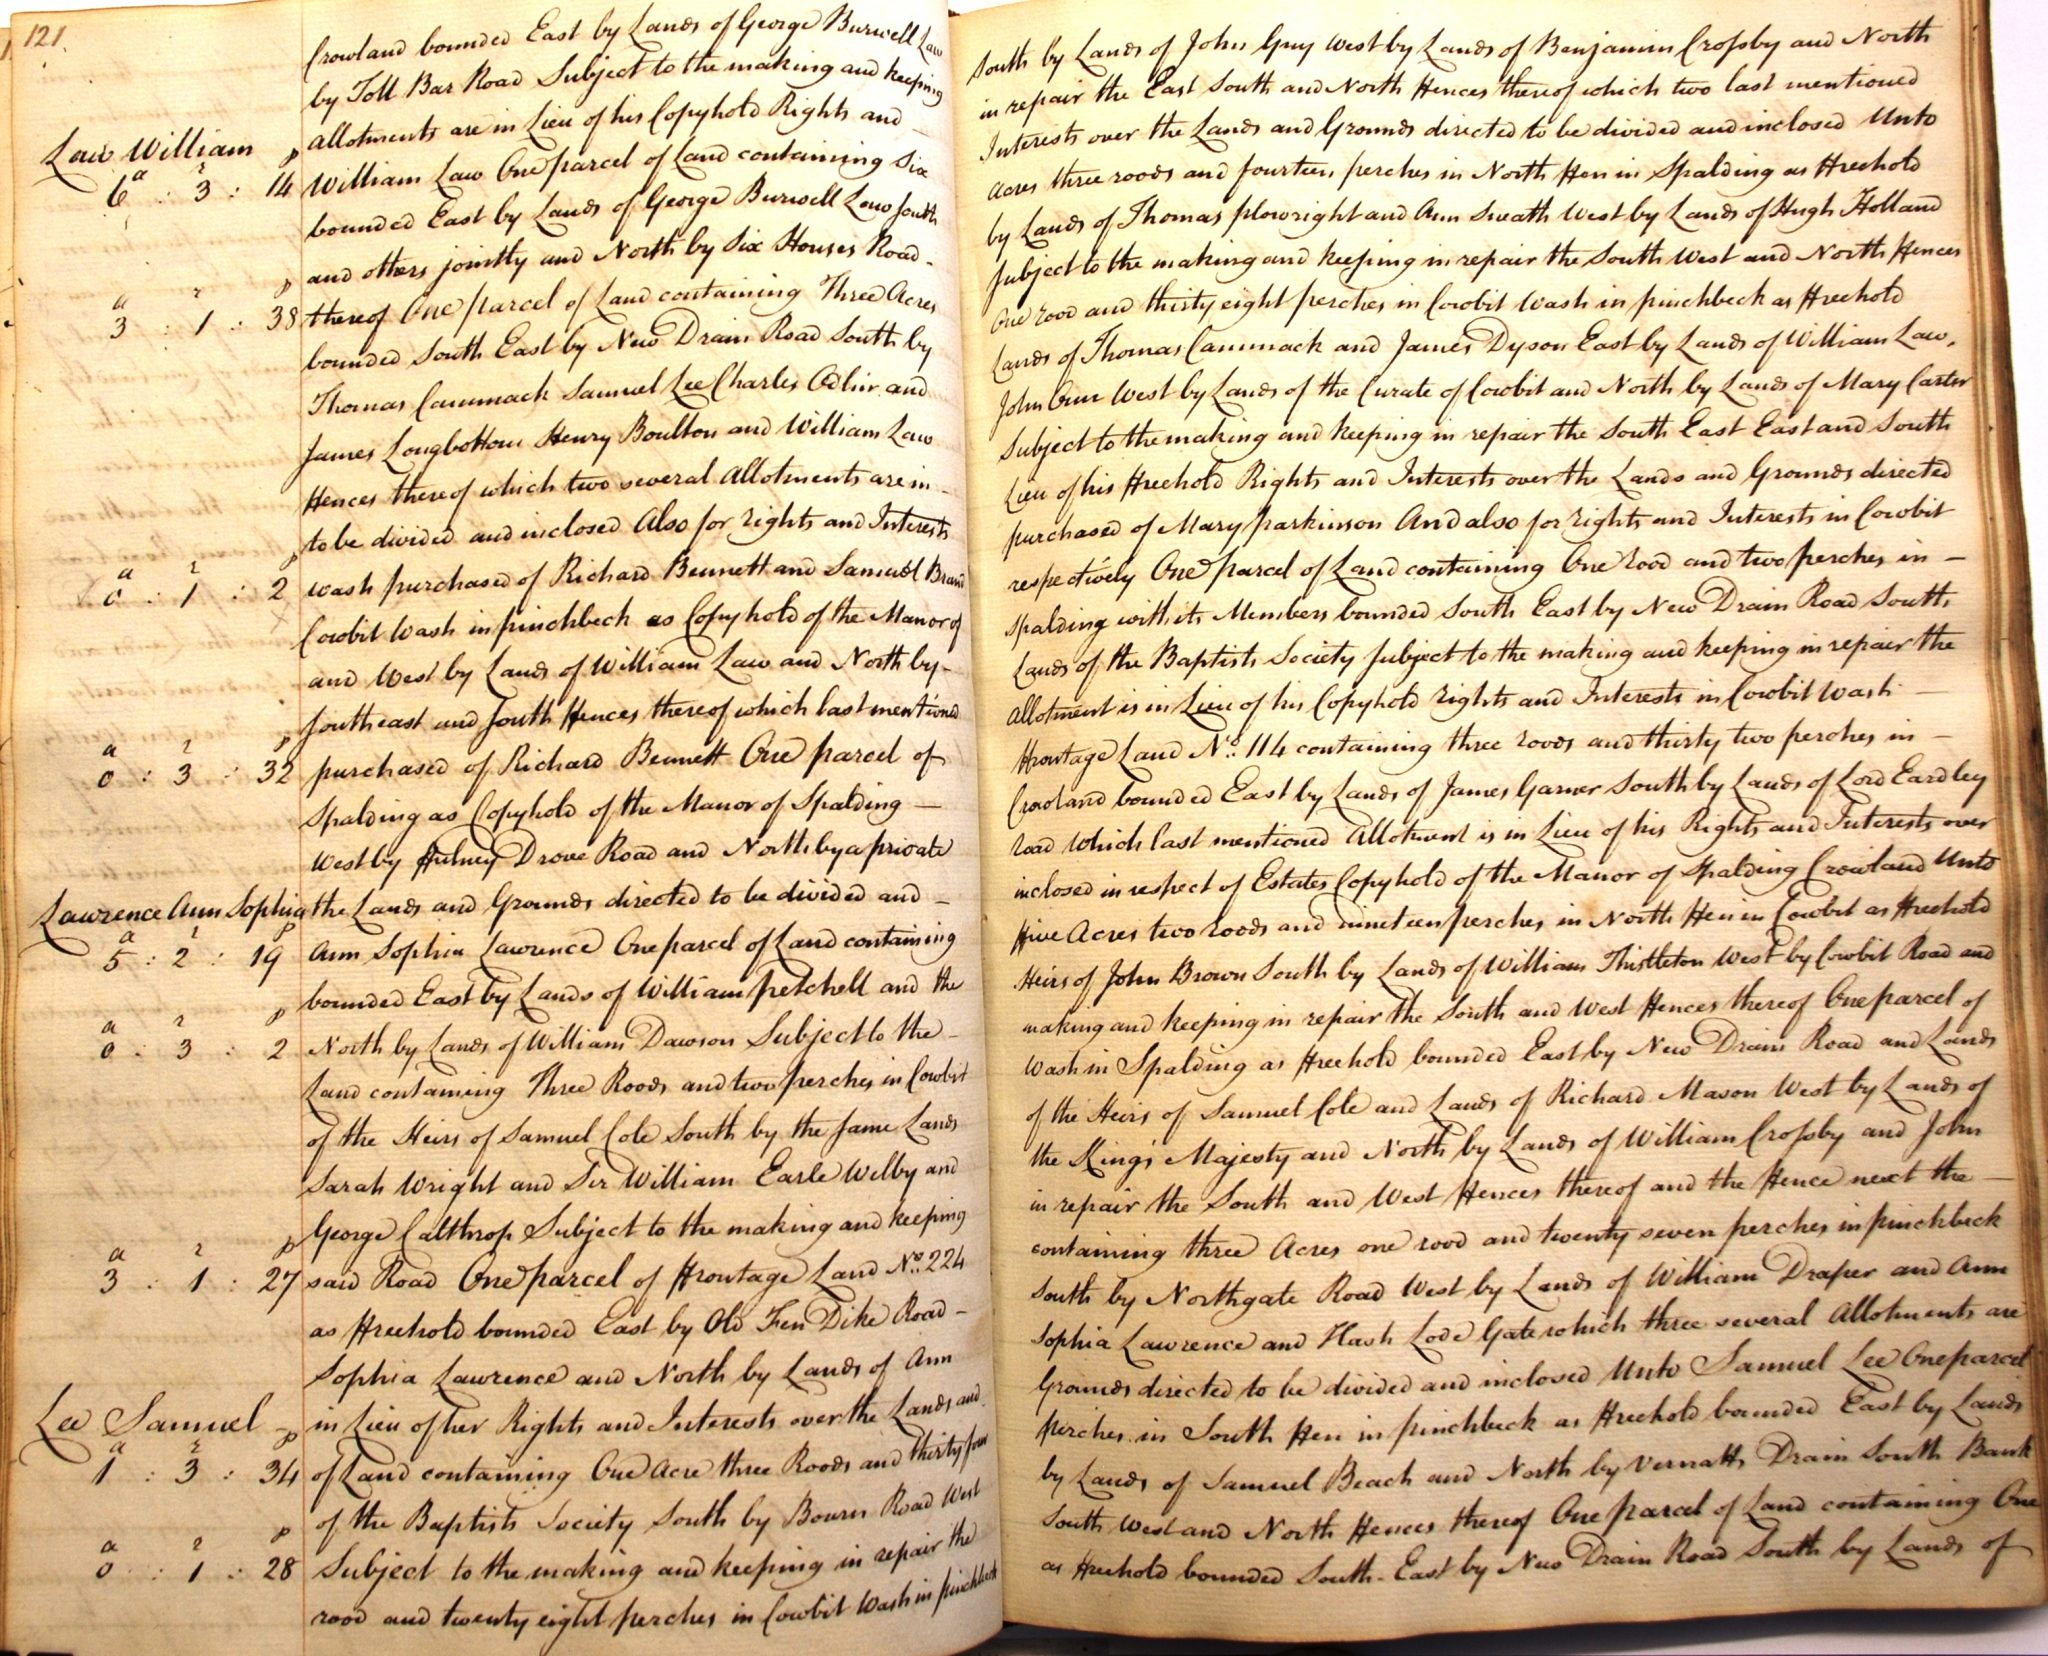 121.
Crowland bounded East by Lands of George Burwell Law South by Lands of John Guy West by Lands of Benjamin Crossby and North
by Toll Bar Road Subject to the making and keeping in repair the East South and North Fences thereof which two last mentioned
allotments are in Lieu of his Copyhold Rights and Interests over the Lands and Grounds directed to be divided and inclosed Unto
Law William
a r p
6 : 3 : 14 William Law One parcel of Land containing Six Acres three roods and fourteen perches in North Fen in Spalding as Freehold
bounded East by Lands of George Burwell Law South by Lands of Thomas Plowright and Ann Sneath West by Lands of Hugh Holland
and others jointly and North by Six Houses Road Subject to the making and keeping in repair the South West and North Fences
a r p
3 : 1 : 38 thereof One parcel of Land containing Three Acres One rood and thirty eight perches in Cowbit Wash in pinchbeck as Freehold
bounded South East by New Drain Road South by Lands of Thomas Cammack and James Dyson East by Lands of William Law,
Thomas Cammack Samuel Lee Charles Odlin and John Orm West by Lands of the Curate of Cowbit and North by Lands of Mary Carter
James Longbottom Henry Boulton and William Law Subject to the making and keeping in repair the South East East and South
Fences thereof which two several Allotments are in Lieu of his Freehold Rights and Interests over the Lands and Grounds directed
to be divided and inclosed Also for rights and Interests purchased of Mary parkinson And also for rights and Interests in Cowbit
a r p
0 : 1 : 2 wash purchased of Richard Bennett and Samuel Brand respectively One parcel of Land containing One rood and two perches in
Cowbit Wash in pinchbeck as Copyhold of the Manor of Spalding with its Members bounded South East by New Drain Road South
and West by Lands of William Law and North by Lands of the Baptists Society Subject to the making and keeping in repair the
South east and South Fences thereof which last mentioned Allotment is in Lieu of his Copyhold rights and Interests in Cowbit Wash
a r p
0 : 3 : 32 purchased of Richard Bennett One parcel of Frontage Land No. 114 containing three roods and thirty two perches in
Spalding as Copyhold of the Manor of Spalding Crowland bounded East by Lands of James Garner South by Lands of Lord Eardley
West by Fulney Drove Road and North by a private road which last mentioned Allotment is in Lieu of his Rights and Interests over
the Lands and Grounds directed to be divided and inclosed in respect of Estates Copyhold of the Manor of Spalding Crowland Unto
Lawrence Ann Sophia
a r p
5 : 2 : 19 Ann Sophia Lawrence One parcel of Land containing Five Acres two roods and nineteen perches in North Fen in Cowbit as Freehold
bounded East by Lands of William Petchell and the Heirs of John Brown South by Lands of William Thistleton West by Cowbit Road and
a r p
0 : 3 : 2 North by Lands of William Dawson Subject to the making and keeping in repair the South and West Fences thereof One parcel of
Land containing Three Roods and two perches in Cowbit Wash in Spalding as Freehold bounded East by New Drain Road and Lands
of the Heirs of Samuel Cole South by the same Lands of the Heirs of Samuel Cole and Lands of Richard Mason West by Lands of
Sarah Wright and Sir William Earle Welby and the King's Majesty and North by Lands of William Crossby and John
George Calthrop Subject to the making and keeping in repair the South and West Fences thereof and the Fence next the
a r p
3 : 1 : 27 said Road One parcel of Frontage Land No. 224 containing three Acres one rood and twenty seven perches in pinchbeck
as Freehold bounded East by Old Fen Dike Road South by Northgate Road West by Lands of William Draper and Ann
Sophia Lawrence and North by Lands of Ann Sophia Lawrence and Flash Lode Gate which three several Allotments are
in Lieu of her Rights and Interests over the Lands and Grounds directed to be divided and inclosed Unto Samuel Lee One parcel
Lee Samuel
a r p
1 : 3 : 34 of Land containing One Acre three Roods and thirty four perches in South Fen in pinchbeck as Freehold bounded East by Lands
of the Baptists Society South by Bourn Road West by Lands of Samuel Beach and North by Vernatts Drain South Bank
a r p
0 : 1 : 28 Subject to the making and keeping in repair the South West and North Fences thereof One parcel of Land containing One
rood and twenty eight perches in Cowbit Wash in pinchbeck as Freehold bounded South-East by New Drain Road South by Lands of